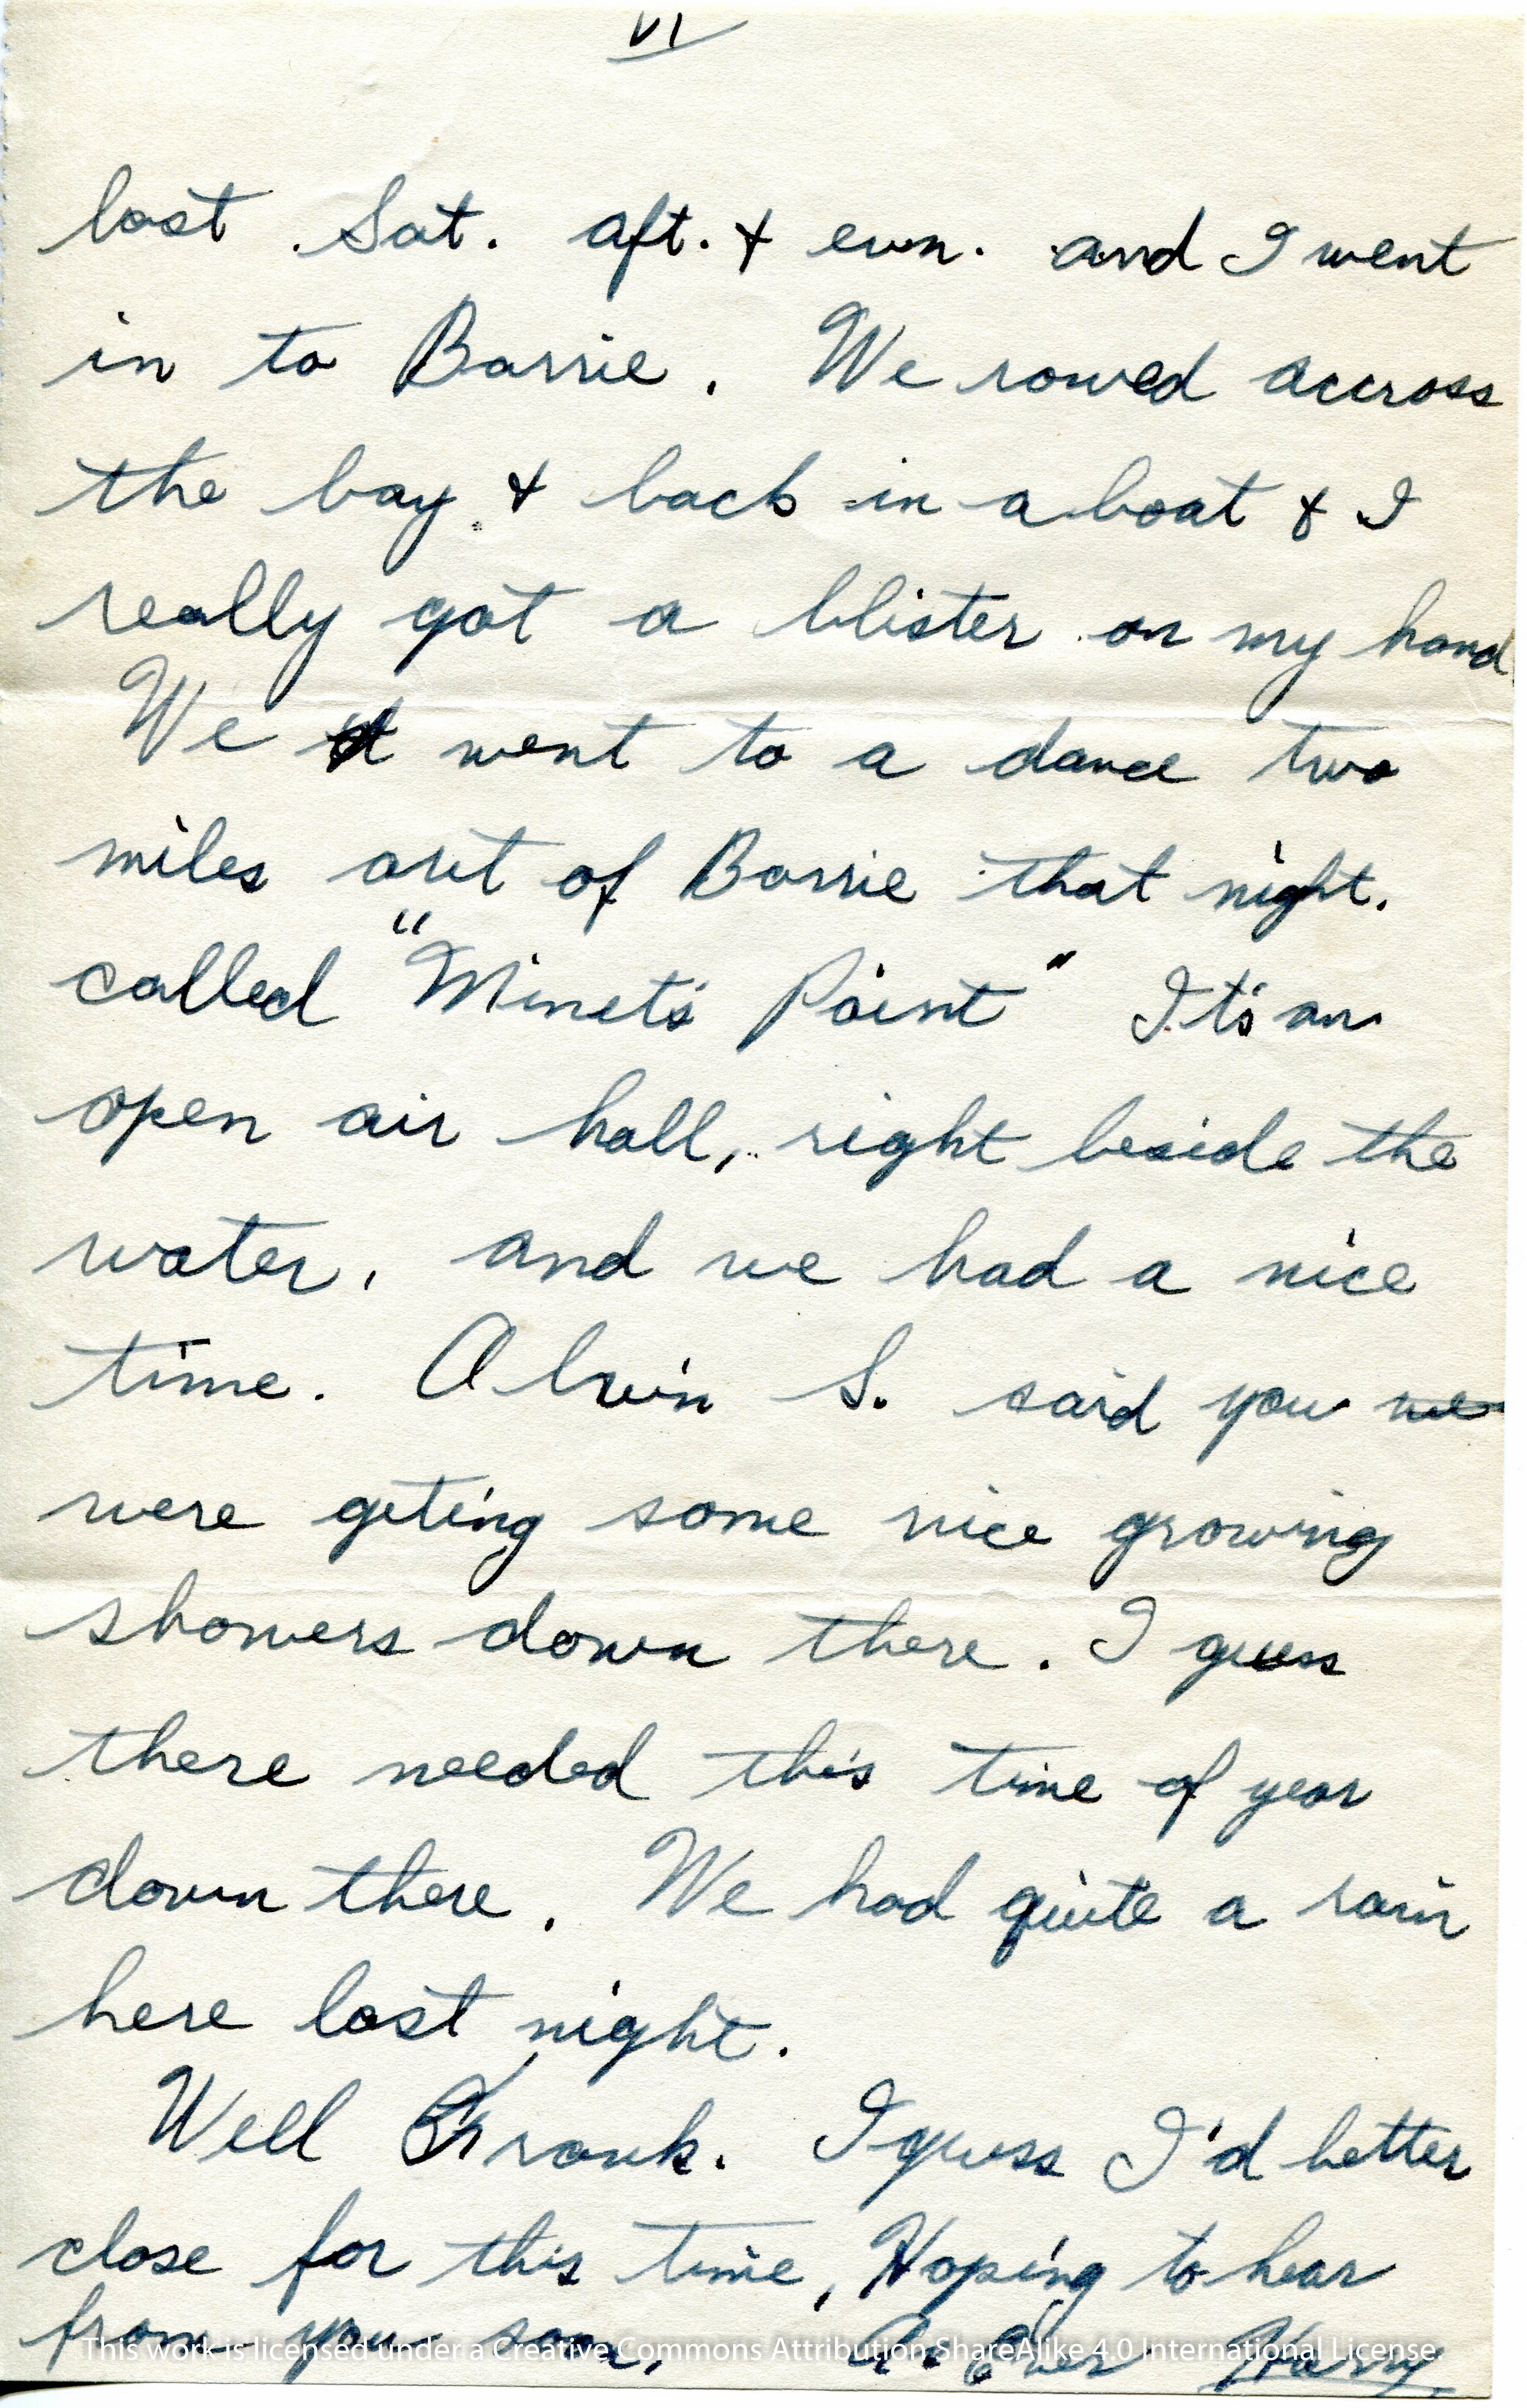 VI
last Sat. aft. & evn. and I went
in to Barrie. We rowed accross
the bay & back in a boat & I
really got a blister on my hand.
We went to a dance two
miles out of Barrie that night.
called "Minet's Point" It's an
open air hall, right beside the
water. and we had a nice
time. Alvin S. said you we
were geting some nice growing
showers down there. I guess
there needed this time of year
down there. We had quite a rain
here last night.
Well Frank. I guess I'd better
close for this time, Hoping to hear
from you soon. As Ever Harry
This work is licensed under a Creative Commons Attribution-ShareAlike 4.0 International License.